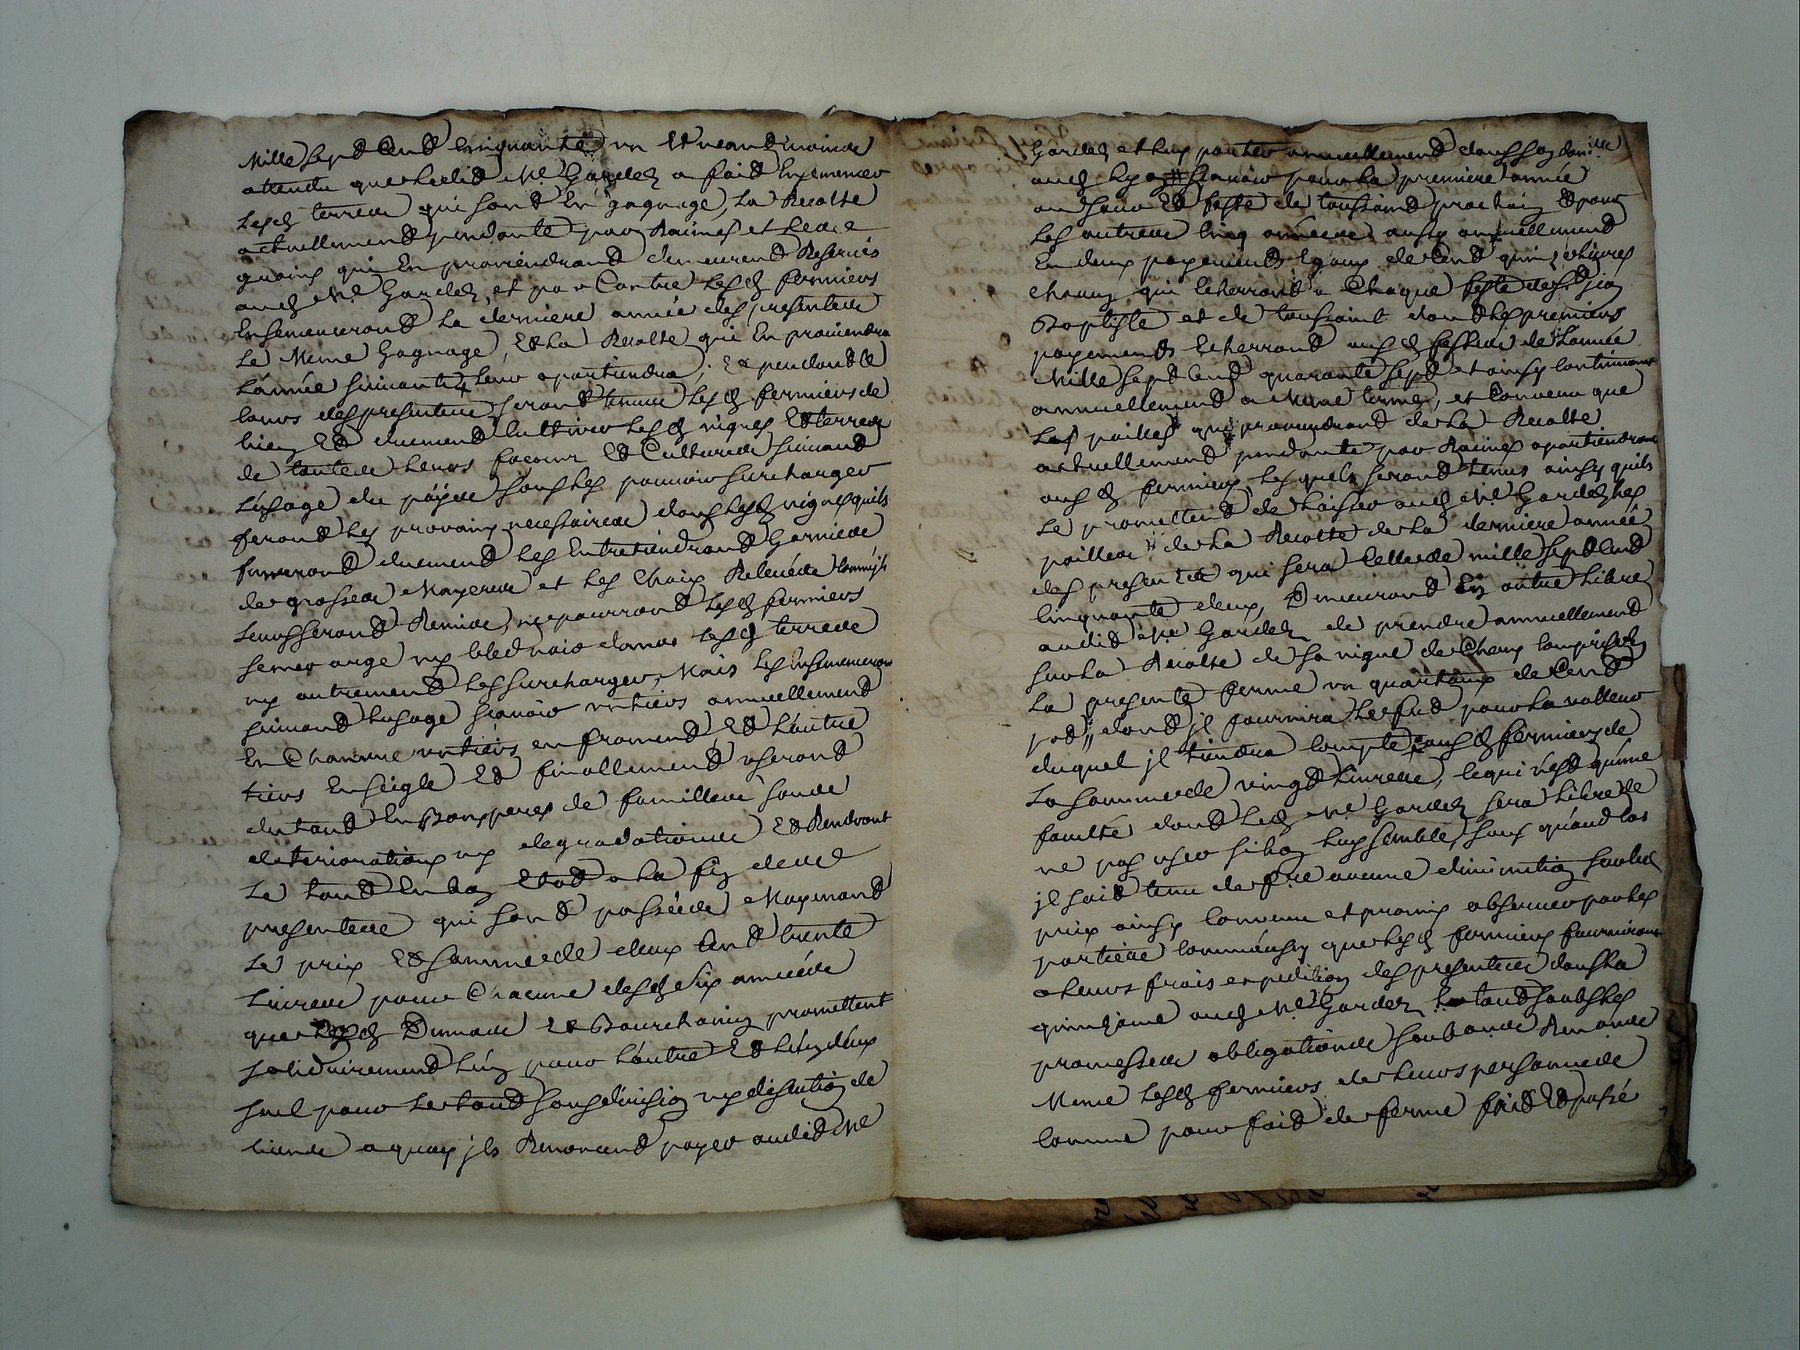 Mille sept Cent Cinquante un Et neantmoinse
attendu que ledit Me Gardel a fait Ensemencer
Lesd terrese qui sont En gagnage, La Recolte
actuellement pendante par Racines et Lese
grains qui En proviendront demeurent Reservés
aud Me Gardel, et par Contre Lesd fermiers
Ensemenceront La derniere année des presentese
Le Meme Gagnage, Et La Recolte qui En proviendra
L'année suivante Leur apartiendra; Et pendant Le
Cours des presentese seront tenuse Lesd fermiers de
bien Et duement Cultiver Lesd vignes Et terrese
de toutese Leurs façons Et Culturese suivant
L'usage du païse sans Les pouvoir surcharger
feront Les provains necessairese dans Lesd vignes quils
fumeront duement Les Entretiendront Garniese
de grossese Mayerese et Les Choix Relevése Comme ils
Leurs seront Remise, ne pourront Lesd fermiers
semer orge ny bled noir dans Lesd terrese
ny autrement Les surcharger, Mais Les Ensemenceront
suivant Lusage scavoir un tiers annuellement
En Chanvre un tiers en froment, Et L'autre
tiers En seigle Et finallement useront
du tout En Bons peres de famillese sans
deteriorations ny degradationse Et Rendront
Le tout En bon Etat a La fin dese
presentese qui sont passéese Moyenant
Le prix Et somme de deux Cent trente
Livrese pour Chacune desd six annéese
que Lesd Dumase Et Bourchanin promettent
solidairement L'un pour L'autre Et L'un d'eux
seul pour Le tout sans division ny discution de
biense a quoy ils Renoncent payer audit Me
Gardel et Luy porter annuellement dans son domille
aud Lyon scavoir pour La premiere année
au jour Et feste de toussaint prochain Et pour
Les autrese Cinq annéese aussy annuellement
En deux payements Egaux de Cent quinze Livres
Chacun qui Echerront a Chaque feste de St Jean
Baptiste et de toussaint dont Les premiers
payements Echerront auxd festese de L'année
Mille sept Cent quarante sept et ainsy Continuant
annuellement a Meme terme, et Convenu que
Les pailles qui proviendront de La Recolte
actuellement pendante par Racines apartiendront
auxd fermiers, Lesquels seront tenus ainsy quils
Le promettent de Laisser aud Me Gardel Les
paillese de La Recolte de La derniere année
des presentese qui sera Celle de mille sept Cent
Cinquante deux, Demeurant En outre Libre
audit Me Gardel de prendre annuellement
sur La Recolte de sa vigne de Champ Comprise En
La presente ferme un quartaux de Cent
pots, dont il fournira Le fut pour La valleur
duquel il tiendra Compte auxd fermiers de
La somme de vingt Livrese, Ce qui n'est qu'une
faculté dont Led Me Gardel sera Libre de
ne pas user si bon Luy semble, sans qu'aud Cas
il soit tenu de fre aucune diminution sur Led
prix ainsy Convenu et promis observer par Les
partiese Comme aussy que Lesd fermiers fourniront
a Leurs frais expedition des presentese dans La
quinzaine aud Me Gardel Le tout sous Les
promessese obligationse soubmise Renonse
Meme Lesd fermiers de Leurs personnese
Comme pour fait de ferme fait Et passé